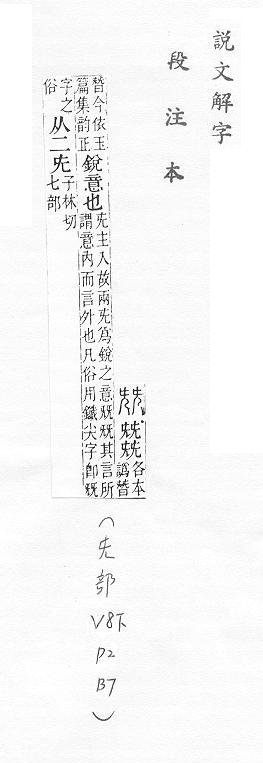 說文解字
段注本
兓 兓兓各本
譌朁
朁今依玉
篇集韵正
銳意也
兂主入故兩兂爲銳之意兓兓其言所
謂意內而言外也凡俗用鑯尖字卽兓
字之
俗
从二兂
子林切
七部
（兂部 V8下 P2 B7）